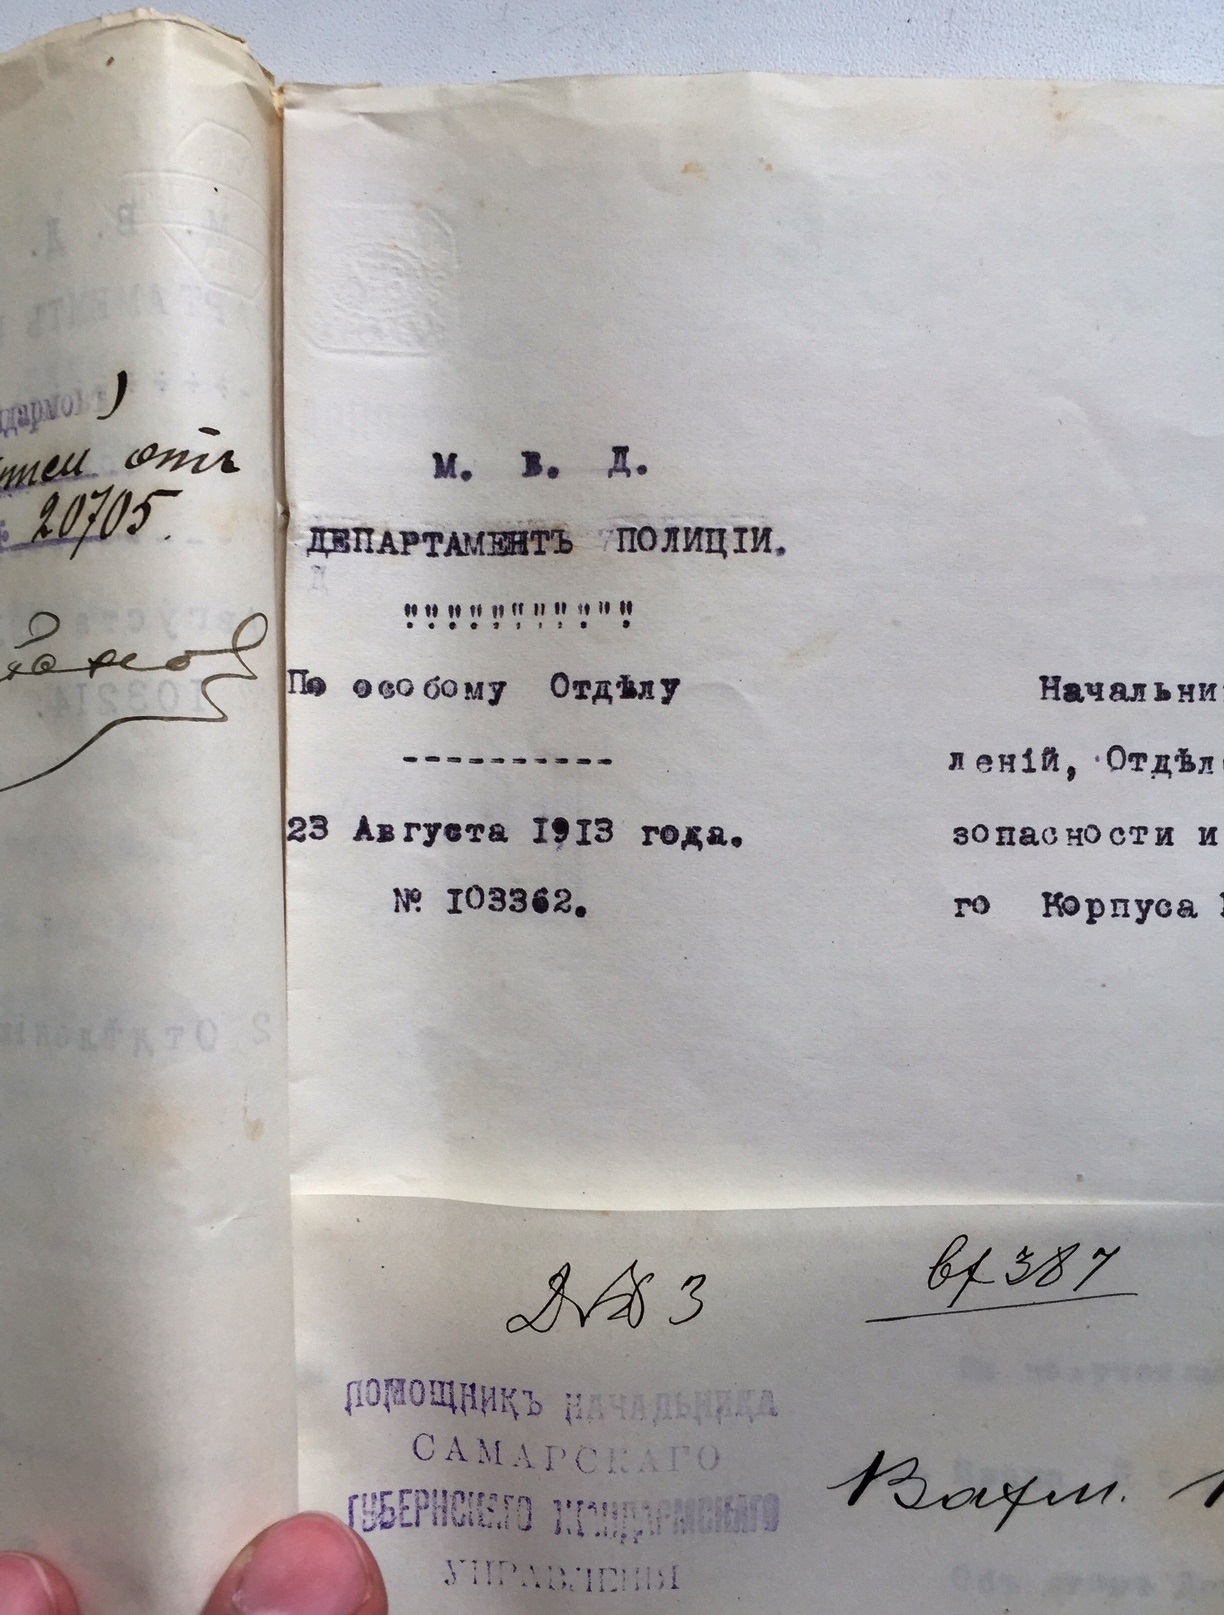 отъ
20705.
М. В. Д.
ДЕПАРТАМЕНТЪ ПОЛИЦІИ.
"""""""""""
По особому Отдѣлу
----------
23 Августа 1913 года.
№ 103362.
Начальни
леній, Отдѣле
зопасности и
го Корпуса
3
вх 387
ПОМОЩНИКЪ НАЧАЛЬНИКА
САМАРСКАГО
ГУБЕРНСКАГО ЖАНДАРМСКАГО
УПРАВЛЕНІЯ
Вахм.